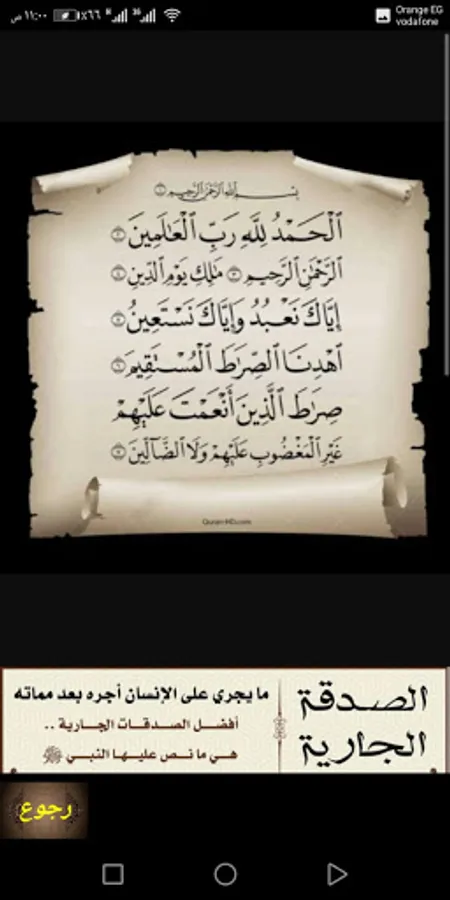 ١١:٠٠ ص
٪٦٦
Orange EG
vodafone
بِسْمِ ٱللَّهِ ٱلرَّحْمَٰنِ ٱلرَّحِيمِ ۝١
ٱلْحَمْدُ لِلَّهِ رَبِّ ٱلْعَٰلَمِينَ ۝٢
ٱلرَّحْمَٰنِ ٱلرَّحِيمِ ۝٣ مَٰلِكِ يَوْمِ ٱلدِّينِ ۝٤
إِيَّاكَ نَعْبُدُ وَإِيَّاكَ نَسْتَعِينُ ۝٥
ٱهْدِنَا ٱلصِّرَٰطَ ٱلْمُسْتَقِيمَ ۝٦
صِرَٰطَ ٱلَّذِينَ أَنْعَمْتَ عَلَيْهِمْ
غَيْرِ ٱلْمَغْضُوبِ عَلَيْهِمْ وَلَا ٱلضَّآلِّينَ ۝٧
Quran-HD.com
الصدقة
الجارية
ما يجري على الإنسان أجره بعد مماته
أفضل الصدقات الجارية ..
هي ما نص عليها النبي ﷺ
رجوع